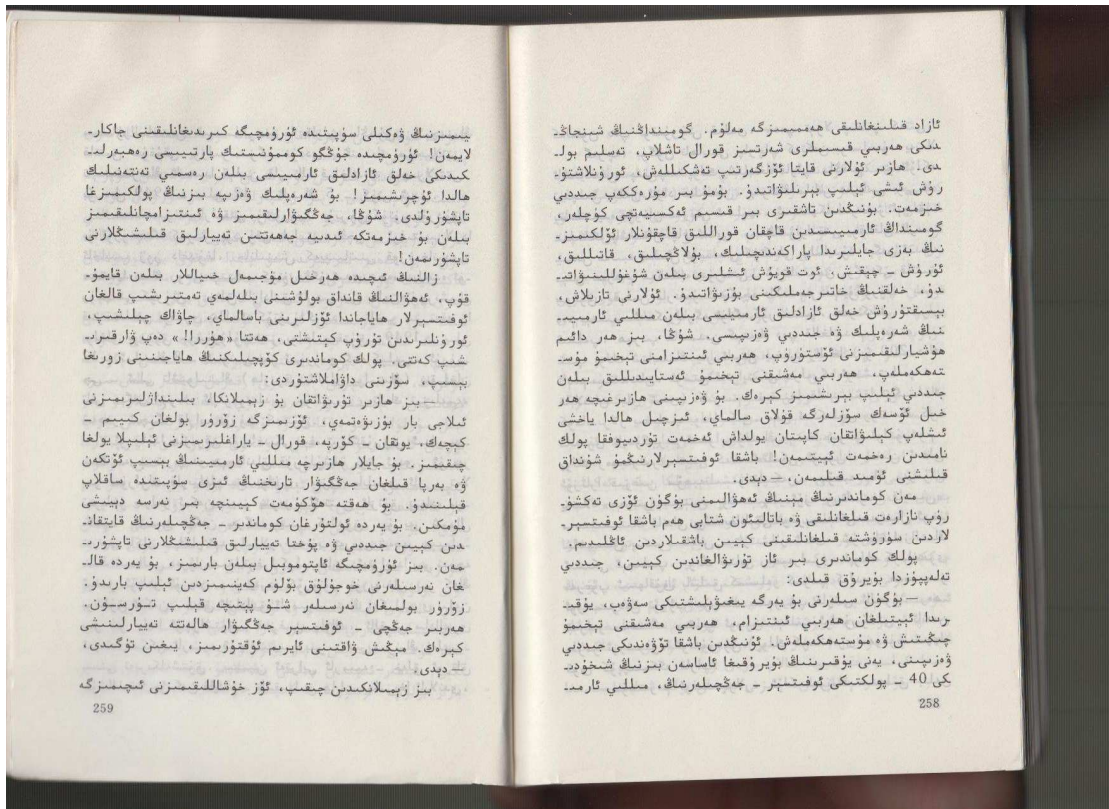 ئازاد قىلىنغانلىقى ھەممىمىزگە مەلۇم. گومىنداڭنىڭ شىنجاڭ-
دىكى ھەربىي قىسىملىرى شەرتسىز قورال تاشلاپ، تەسلىم بول-
دى. ھازىر ئۇلارنى قايتا ئۆزگەرتىپ تەشكىللەش، ئورۇنلاشتۇ-
رۇش ئىشى ئېلىپ بېرىلىۋاتىدۇ. بۇمۇ بىر مۇرەككەپ جىددىي
خىزمەت. بۇنىڭدىن تاشقىرى بىر قىسىم ئەكسىيەتچى كۈچلەر،
گومىنداڭ ئارمىيىسىدىن قاچقان قوراللىق قاچقۇنلار ئۆلكىمىز-
نىڭ بەزى جايلىرىدا پاراكەندىچىلىك، بۇلاڭچىلىق، قاتىللىق،
ئۇرۇش – چېقىش، ئوت قويۇش ئىشلىرى بىلەن شۇغۇللىنىۋاتى-
دۇ، خەلقنىڭ خاتىرجەملىكىنى بۇزىۋاتىدۇ. ئۇلارنى تازىلاش،
بېسىقتۇرۇش خەلق ئازادلىق ئارمىيىسى بىلەن مىللىي ئارمىيى-
نىڭ شەرەپلىك ۋە جىددىي ۋەزىپىسى. شۇڭا، بىز ھەر دائىم
ھۇشيارلىقىمىزنى ئۆستۈرۈپ، ھەربىي ئىنتىزامنى تېخىمۇ مۇس-
تەھكەملەپ، ھەربىي مەشىقنى تېخىمۇ ئەستايىدىللىق بىلەن
جىددىي ئېلىپ بېرىشىمىز كېرەك. بۇ ۋەزىپىنى ھازىرغىچە ھەر
خىل ئۆسەك سۆزلەرگە قۇلاق سالماي، ئىزچىل ھالدا ياخشى
ئىشلەپ كېلىۋاتقان كاپىتان يولداش ئەخمەت تۇردىيوفقا پولك
نامىدىن رەخمەت ئېيتىمەن! باشقا ئوفىتسېرلارنىڭمۇ شۇنداق
قىلىشنى ئۈمىد قىلىمەن، — دېدى.
مەن كوماندىرنىڭ مېنىڭ ئەھۋالىمنى بۈگۈن ئۆزى تەكشۈ-
رۈپ نازارەت قىلغانلىقى ۋە باتالىئون شتابى ھەم باشقا ئوفىتسېر-
لاردىن سۈرۈشتە قىلغانلىقىنى كېيىن باشقىلاردىن ئاڭلىدىم.
پولك كوماندىرى بىر ئاز تۇرىۋالغاندىن كېيىن، جىددىي
تەلەپپۇزدا بۇيرۇق قىلدى:
— بۈگۈن سىلەرنى بۇ يەرگە يىغىۋېلىشتىكى سەۋەب، يۇقى-
رىدا ئېيتىلغان ھەربىي ئىنتىزام، ھەربىي مەشىقنى تېخىمۇ
چىڭىتىش ۋە مۇستەھكەملەش. ئۇنىڭدىن باشقا تۆۋەندىكى جىددىي
ۋەزىپىنى، يەنى يۇقىرىنىڭ بۇيرۇقىغا ئاساسەن بىزنىڭ شىخودى-
كى 40 – پولكتىكى ئوفىتسېر – جەڭچىلەرنىڭ، مىللىي ئارمى-
258
يىمىزنىڭ ۋەكىلى سۈپىتىدە ئۈرۈمچىگە كىرىدىغانلىقىنى جاكار-
لايمەن! ئۈرۈمچىدە جۇڭگو كوممۇنىستىك پارتىيىسى رەھبەرلى-
كىدىكى خەلق ئازادلىق ئارمىيىسى بىلەن رەسمىي تەنتەنىلىك
ھالدا ئۇچرىشىمىز! بۇ شەرەپلىك ۋەزىپە بىزنىڭ پولكىمىزغا
تاپشۇرۇلدى. شۇڭا، جەڭگىۋارلىقىمىز ۋە ئىنتىزامچانلىقىمىز
بىلەن بۇ خىزمەتكە ئىدىيە جەھەتتىن تەييارلىق قىلىشىڭلارنى
تاپشۇرىمەن!
زالنىڭ ئىچىدە ھەرخىل مۈجىمەل خىياللار بىلەن قايمۇ-
قۇپ، ئەھۋالنىڭ قانداق بولۇشىنى بىلەلمەي تەمتىرىشىپ قالغان
ئوفىتسېرلار ھاياجاندا ئۆزلىرىنى باسالماي، چاۋاك چېلىشىپ،
ئورۇنلىرىدىن تۇرۇپ كېتىشتى، ھەتتا «ھۇررا!» دەپ ۋارقىرى-
شىپ كەتتى. پولك كوماندىرى كۆپچىلىكنىڭ ھاياجىنىنى زورىغا
بېسىپ، سۆزىنى داۋاملاشتۇردى:
— بىز ھازىر تۇرىۋاتقان بۇ زېمىلانكا، بىلىنداژلىرىمىزنى
ئىلاجى بار بۇزىۋەتمەي، ئۆزىمىزگە زۆرۈر بولغان كىيىم –
كېچەك، يوتقان – كۆرپە، قورال – ياراغلىرىمىزنى ئېلىپلا يولغا
چىقىمىز. بۇ جايلار ھازىرچە مىللىي ئارمىيىنىڭ بېسىپ ئۆتكەن
ۋە بەرپا قىلغان جەڭگىۋار تارىخىنىڭ ئىزى سۈپىتىدە ساقلاپ
قېلىنىدۇ. بۇ ھەقتە ھۆكۈمەت كېيىنچە بىر نەرسە دېيىشى
مۇمكىن. بۇ يەردە ئولتۇرغان كوماندىر – جەڭچىلەرنىڭ قايتقان-
دىن كېيىن جىددىي ۋە پۇختا تەييارلىق قىلىشىڭلارنى تاپشۇرى-
مەن. بىز ئۈرۈمچىگە ئاپتوموبىل بىلەن بارىمىز، بۇ يەردە قال-
غان نەرسىلەرنى خوجۇلۇق بۆلۈم كەينىمىزدىن ئېلىپ بارىدۇ.
زۆرۈر بولمىغان نەرسىلەر شۇ پېتىچە قېلىپ تۇرسۇن.
ھەربىر جەڭچى – ئوفىتسېر جەڭگىۋار ھالەتتە تەييارلىنىشى
كېرەك. مېڭىش ۋاقتىنى ئايرىم ئۇقتۇرىمىز، يىغىن تۈگىدى،
— دېدى.
بىز زېمىلانكىدىن چىقىپ، ئۆز خۇشاللىقىمىزنى ئىچىمىزگە
259